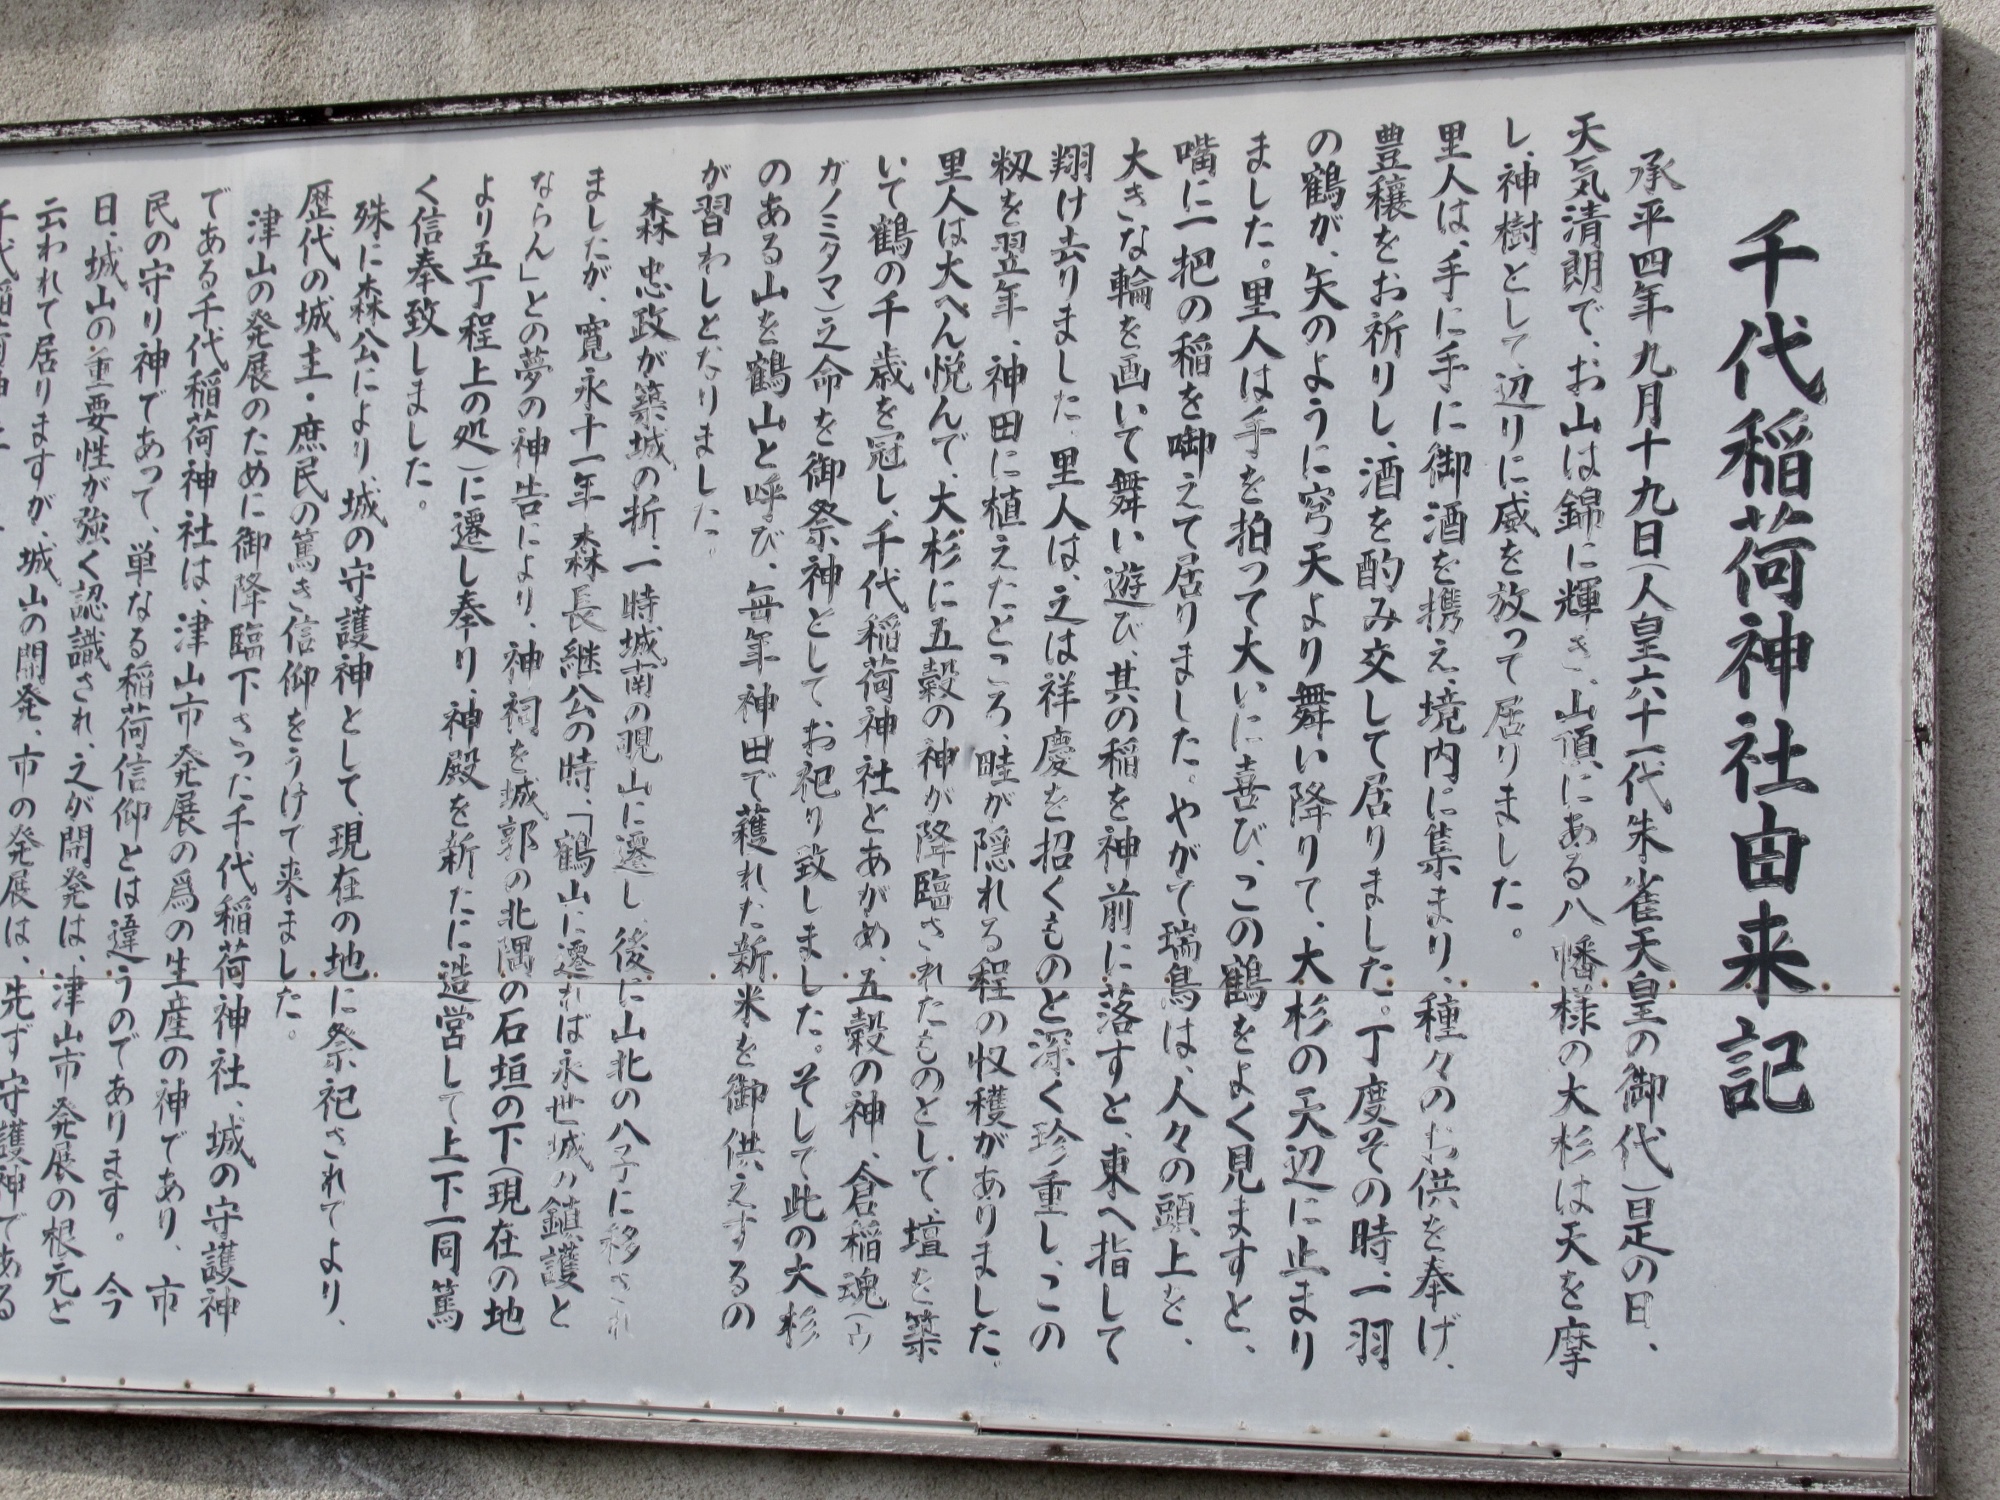 千代稲荷神社由来記
承平四年九月十九日（人皇六十一代朱雀天皇の御代）是の日、
天気清朗で、お山は錦に輝き、山頂にある八幡様の大杉は天を摩
し、神樹として辺りに威を放って居りました。
里人は、手に手に御酒を携え、境内に集まり、種々のお供を奉げ、
豊穣をお祈りし、酒を酌み交して居りました。丁度その時一羽
の鶴が、矢のように穹天より舞い降りて、大杉の天辺に止まり
ました。里人は手を拍って大いに喜び、この鶴をよく見ますと、
嘴に一把の稲を啣えて居りました。やがて瑞鳥は、人々の頭上を、
大きな輪を画いて舞い遊び、其の稲を神前に落すと、東へ指して
翔け去りました。里人は、之は祥慶を招くものと深く珍重し、この
籾を翌年、神田に植えたところ、畦が隠れる程の収穫がありました。
里人は大へん悦んで、大杉に五穀の神が降臨されたものとして、壇を築
いて鶴の千歳を冠し、千代稲荷神社とあがめ、五穀の神、倉稲魂（ウ
ガノミタマ）之命を御祭神としてお祀り致しました。そして此の大杉
のある山を鶴山と呼び、毎年神田で穫れた新米を御供えするの
が習わしとなりました。
森忠政が築城の折、一時城南の覗山に遷し、後に山北の八子に移され
ましたが、寛永十一年森長継公の時、「鶴山に遷れば永世城の鎮護と
ならん」との夢の神告により、神祠を城郭の北隅の石垣の下（現在の地
より五丁程上の処）に遷し奉り、神殿を新たに造営して上下一同篤
く信奉致しました。
殊に森公により、城の守護神として、現在の地に祭祀されてより、
歴代の城主・庶民の篤き信仰をうけて来ました。
津山の発展のために御降臨下さった千代稲荷神社、城の守護神
である千代稲荷神社は、津山市発展の為の生産の神であり、市
民の守り神であって、単なる稲荷信仰とは違うのであります。今
日、城山の重要性が強く認識され、之が開発は、津山市発展の根元と
云われて居りますが、城山の開発、市の発展は、先ず守護神である
千代稲荷神社